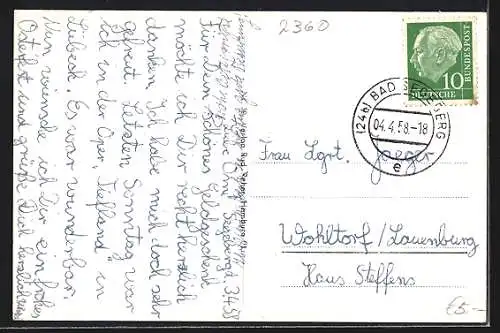 Segeberg, 3.4.58
Für Dein schönes Geldgeschenk
möchte ich Dir recht herzlich
danken. Ich habe mich doch sehr
gefreut. Letzten Sonntag war
ich in der Oper, Tiefland in
Lübeck. Es war wunderbar.
Nun wünsche ich Dir ein frohes
Osterfest und grüße Dich herzlich
2360
10
DEUTSCHE
BUNDESPOST
(24b) BAD SEGEBERG
04.4.58.-18
e
Frau Lgrt. Jaeger
Wohltorf/Lauenburg
Haus Steffens
£5.-